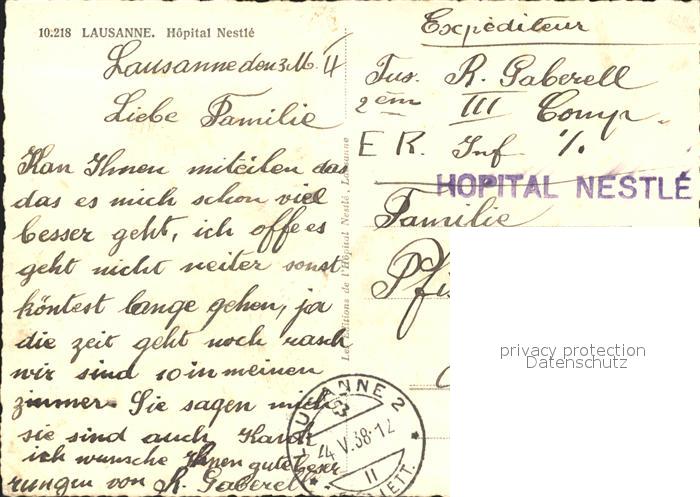 10.218 LAUSANNE. Hôpital Nestlé
Lausanne den 3 M. 4
Liebe Familie
Kan Ihnen miteilen das
das es mich schon viel
besser geht, ich offe es
geht nicht weiter sonst
köntest lange gehen, ja
die zeit geht noch rasch
wir sind 10 in meinen
zimmer. Sie sagen mich
sie sind auch
ich wunsche Ihnen gute beser
rungen von R. Gaberell
Les Editions de l'Hôpital Nestlé, Lausanne
Expéditeur
Fus. R. Gaberell
2em III Comp.
E R. Inf 1/.
HOPITAL NESTLÉ
Familie
Pfi
privacy protection
Datenschutz
LAUSANNE 2
4 V.38-12
II
LETT.